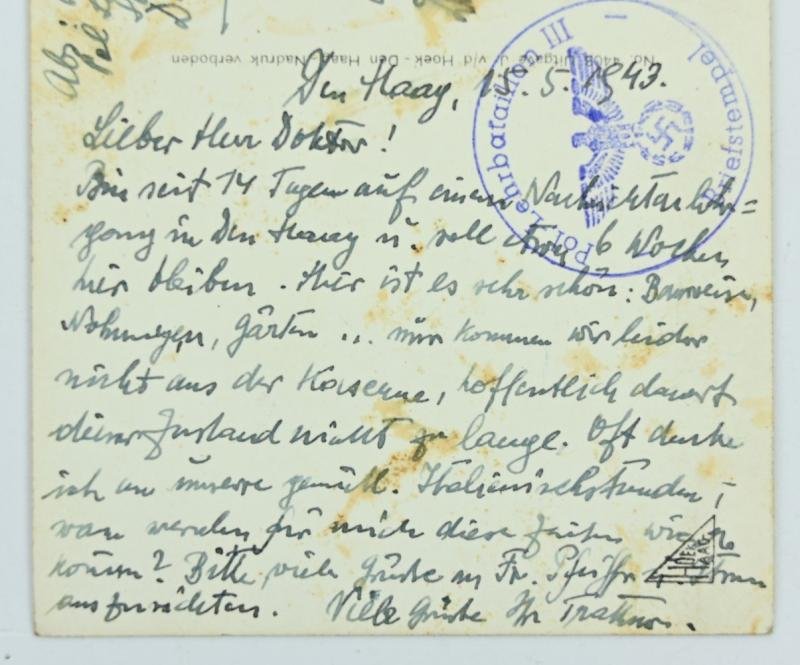 Abs
Pol.
No. 440B Uitgave J. v/d Hoek - Den Haag - Nadruk verboden
Pol. Lehrbataillon III
Briefstempel
Den Haag, 5. 1943.
Lieber Herr Doktor!
Bin seit 14 Tagen auf einem
in Den Haag u. soll 6 Wochen
hier bleiben. Hier ist es sehr schön: Bauweise,
Wohnungen, Gärten ... nur kommen wir leider
nicht aus der Kaserne, hoffentlich dauert
dieser Zustand nicht zu lange. Oft denke
ich an unsere gemütl. Italienischstunden,
wann werden für mich diese Zeiten wieder
kommen? Bitte viele Grüße an Fr. Pfeiffer
auszurichten. Viele Grüße Ihr
HOEK
HAAG